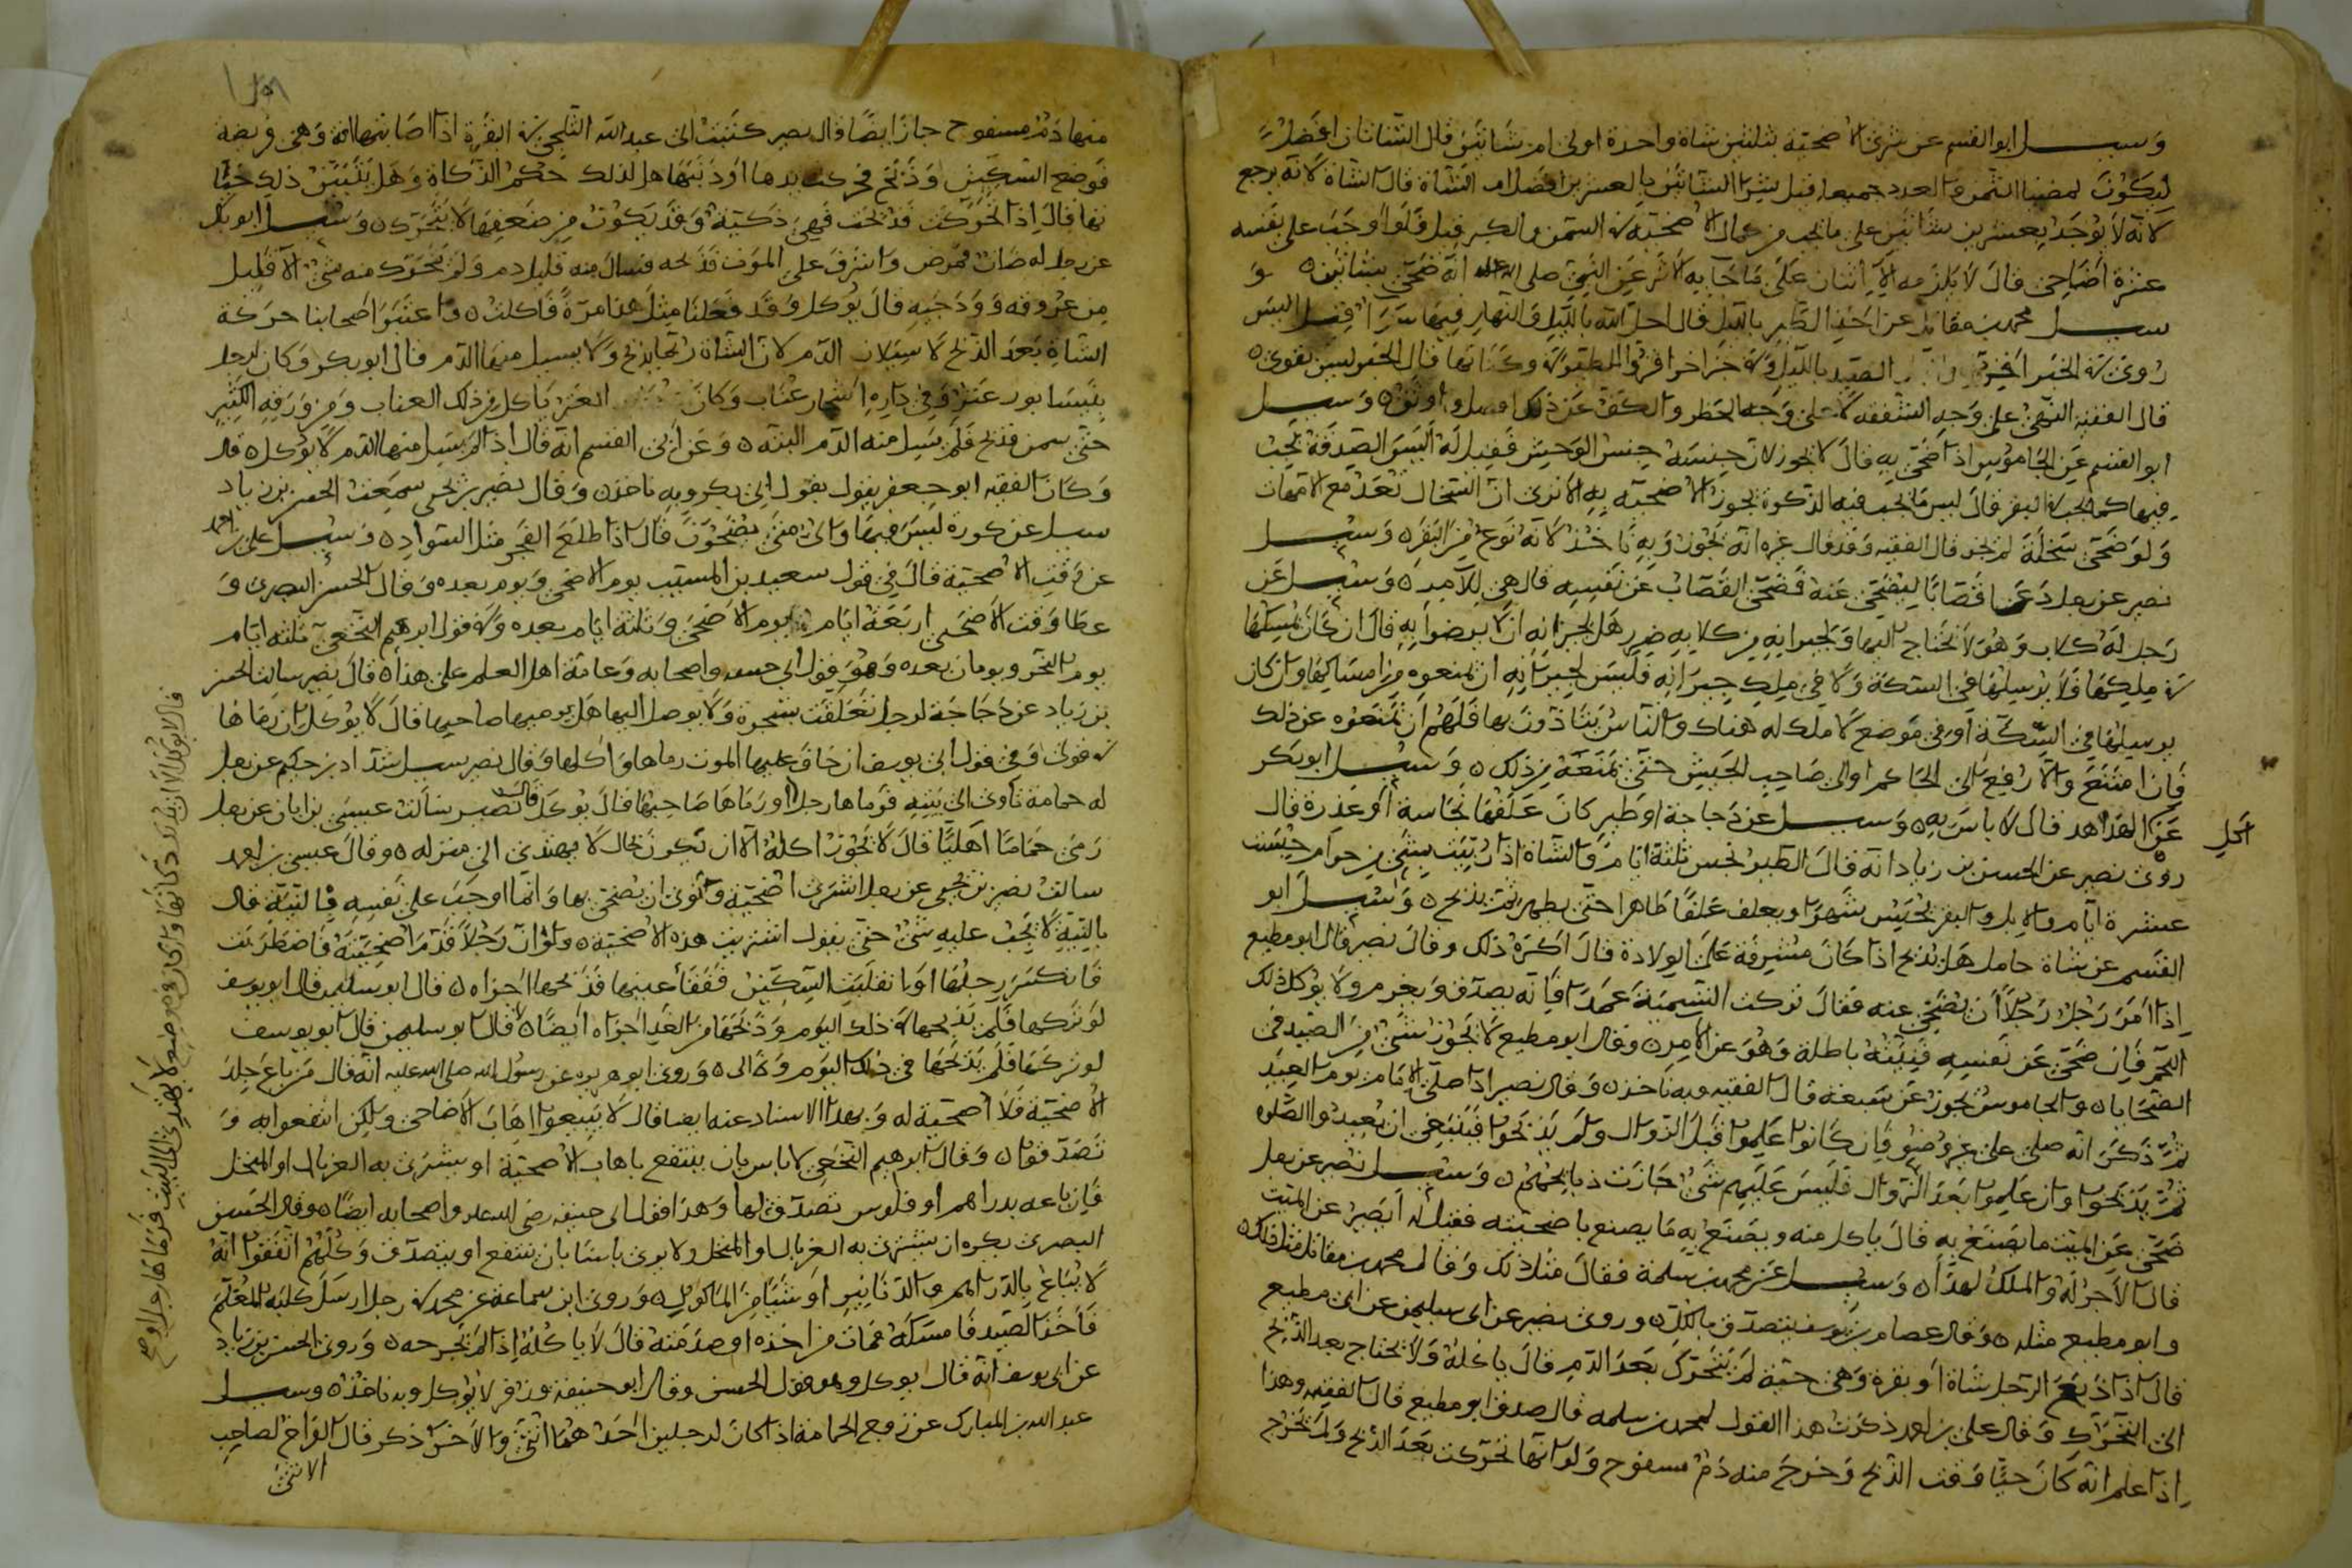 وسيل ابو القسم عن شرى الاضحية بثلثين شاة واحدة اولى ام شاتين قال الشاتان افضل
لانه لا يوجد بعشرين شاتين على ما يجب من كمال الاضحية في السمن والكبر قيل فلو اوجب على نفسه
عشرة اضاحى قال لا يلزمه الا اثنان على ما جا به الاثر عن النبى صلى الله عليه انه ضحى بشاتين و
سيل محمد بن مقاتل عن اخذ الطير بالليل قال احل الله بالليل والنهار فيما
قال الفقيه النهى على وجه الشفقة لا على وجه الحظر والكف عن ذلك افضل واوثق وسيل
ابو القسم عن الجاموس اذا ضحى به قال لا يجوز لان جنسه جنس الوحش فقيل له اليس الصدقة تجب
فيها كما يجب في البقر قال ليس ما يجب فيه الذكوة يجوز الاضحية به الا ترى ان السخال تعد مع الامهات
ولو ضحى سخلة لم يجز قال الفقيه وقد قال غيره انه يجوز وبه ناخذ لانه نوع من البقر وسيل
نصير عن رجل دعا قصابا ليضحى عنه فضحى القصاب عن نفسه قال هى للآمر وسيل عن
رجل له كلاب وهو لا يحتاج اليها ولجيرانه من كلابه ضرر هل لجيرانه ان لا يرضوا به قال ان كان يمسكها
في ملكه ولا يرسلها في السكة ولا في ملك جيرانه فليس لجيرانه ان يمنعوه من امساكها وان كان
يرسلها في السكة او في موضع لا ملك له هناك والناس يتاذون بها فلهم ان يمنعوه عن ذلك
فان امتنع والا رفع الى الحاكم او الى صاحب الجيش حتى يمنعه من ذلك وسيل ابو بكر
عن الهداهد قال لا باس به وسيل عن دجاجة او طير كان علفها نجاسة او عذرة قال
روى نصير عن الحسن بن زياد انه قال الطير تحبس ثلثة ايام والشاة اذا ربيت بشى من حرام حبست
عشرة ايام والابل والبقر تحبس شهرا ويعلف علفا طاهرا حتى يطهر ثم يذبح وسيل ابو
القسم عن شاة حامل هل يذبح اذا كان مشرفة على الولادة قال اكره ذلك وقال نصير قال ابو مطيع
اذا امر رجل رجلا ان يضحى عنه فقال تركت التسمية عمدا فانه يصدق ويغرم ولا يوكل ذلك
اللحم فان ضحى عن نفسه فنيته باطلة وهو عن الامر وقال ابو مطيع لا يجوز شى من الصيد في
الضحايا والجاموس يجوز عن سبعة قال الفقيه وبه ناخذ وقال نصير اذا صلى الامام يوم العيد
ثم ذكر انه صلى على غير وضو فان كانوا علموا قبل الزوال ولم يذبحوا فينبغى ان يعيدوا الصلوة
ثم يذبحوا وان علموا بعد الزوال فليس عليهم شى جازت ذبايحهم وسيل نصير عن رجل
ضحى عن الميت ما يصنع به قال ياكل منه ويصنع به ما يصنع باضحيته فقيل له ايصير عن الميت
قال الاجر له والملك لهذا وسيل عن محمد بن سلمة فقال مثل ذلك وقال محمد بن مقاتل مثل ذلك
وابو مطيع مثله وقال عصام بن يوسف يتصدق بالكل وروى نصير عن ابى سليمن عن ابى مطيع
قال اذا ذبح الرجل شاة او بقرة وهى حية لم تتحرك بعد الدم قال ياكله ولا يحتاج بعد الذبح
الى التحرك وقال على بن احمد ذكرت هذا القول لمحمد بن سلمه قال صدق ابو مطيع قال الفقيه وهذا
اذا علم انه كان حيا وقت الذبح وخرج منه دم مسفوح ولو انها تحركت بعد الذبح ولم تخرج
منها دم مسفوح جاز ايضا قال نصير كتبت الى عبد الله الثلجى في البقرة اذا اصابتها افة وهى مريضة
بها قال اذا تحركت قد ذبحت فهى ذكية وقد يكون من ضعفها لا يتحرك وسيل ابو بكر
عن رجل له ضان فمرض واشرف على الموت فذبحه فسال منه قليل دم ولم يتحرك منه شى الا قليل
من عروقه وودجيه قال يوكل وقد فعلنا مثل هذا مرة فاكلت واعتبر اصحابنا حركة
الشاة بعد الذبح لا سيلان الدم لان الشاة ربما يذبح ولا يسيل منها الدم قال ابو بكر وكان لرجل
بنيسابور عنز وفي داره اشجار عناب وكان العنز ياكل من ذلك العناب ومن ورقه الكثير
حتى سمن فذبح فلم يسيل منه الدم البتة وعن ابى القسم انه قال اذا لم يسيل منها الدم لا يوكل قال
وكان الفقيه ابو جعفر يقول بقول ابى بكر وبه ناخذ وقال نصير بن يحيى سمعت الحسن بن زياد
سيل عن كورة ليس فيها والى متى يضحون قال اذا طلع الفجر مثل السواد وسيل على بن احمد
عن وقت الاضحية قال في قول سعيد بن المسيب يوم الاضحى ويوم بعده وقال الحسن البصرى و
عطا وقت الاضحى اربعة ايام يوم الاضحى وثلثة ايام بعده وفي قول ابرهيم النخعى ثلثة ايام
يوم النحر ويومان بعده وهو قول ابى حنيفة واصحابه وعامة اهل العلم على هذا قال نصير سالت الحسن
بن زياد عن دجاجة لرجل تعلقت بشجرة ولا يوصل اليها هل يرميها صاحبها قال لا يوكل ان رماها
في قولى وفي قول ابى يوسف ان خاف عليها الموت رماها واكلها وقال نصير سيل شداد بن حكيم عن رجل
له حمامة تأوى الى بيته فرماها رجل او رماها صاحبها قال يوكل قال نصير سالت عيسى بن ابان عن رجل
رمى حماما اهليا قال لا يجوز اكله الا ان تكون بحال لا يهتدى الى منزله وقال عيسى بن احمد
سالت نصير بن يحيى عن رجل اشترى اضحية ونوى ان يضحى بها وانما اوجب على نفسه بالنية قال
بالنية لا يجب عليه شى حتى يقول اشتريت هذه الاضحية ولو ان رجلا قدم اضحيته فاضطربت
فانكسرت رجلها او انفلتت السكين ففقأ عينها فذبحها اجزاه قال ابو سليمن قال ابو يوسف
لو تركها فلم يذبحها في ذلك اليوم وذبحها من الغد اجزاه ايضا قال ابو سليمن قال ابو يوسف
لو تركها فلم يذبحها في ذلك اليوم وروى ابو هريرة عن رسول الله صلى الله عليه انه قال من باع جلد
الاضحية فلا اضحية له وبهذا الاسناد عنه ايضا قال لا تبيعوا اهاب الاضاحى ولكن انتفعوا به و
تصدقوا وقال ابرهيم النخعى لا باس بان ينتفع باهاب الاضحية او يشترى به الغربال او المنخل
فان باعه بدراهم او فلوس تصدق بها وهذا قول ابى حنيفة رضى الله عنه واصحابه ايضا وقال الحسن
البصرى يكره ان يشترى به الغربال او المنخل ولا يرى باسا بان ينتفع او يتصدق وكلهم اتفقوا انه
لا يباع بالدراهم والدنانير او شيا من الماكول وروى ابن سماعة عن محمد في رجل ارسل كلبه المعلم
فاخذ الصيد فامسكه فمات من اخذه او صدمته قال لا ياكله اذا لم يجرحه وروى الحسن بن زياد
عن ابى يوسف انه قال يوكل وهو قول الحسن وقال ابو حنيفة وزفر لا يوكل وبه ناخذ وسيل
عبد الله بن المبارك عن زوج الحمامة اذا كان لرجلين احدهما انثى والاخر ذكر قال الفراخ لصاحب
الانثى